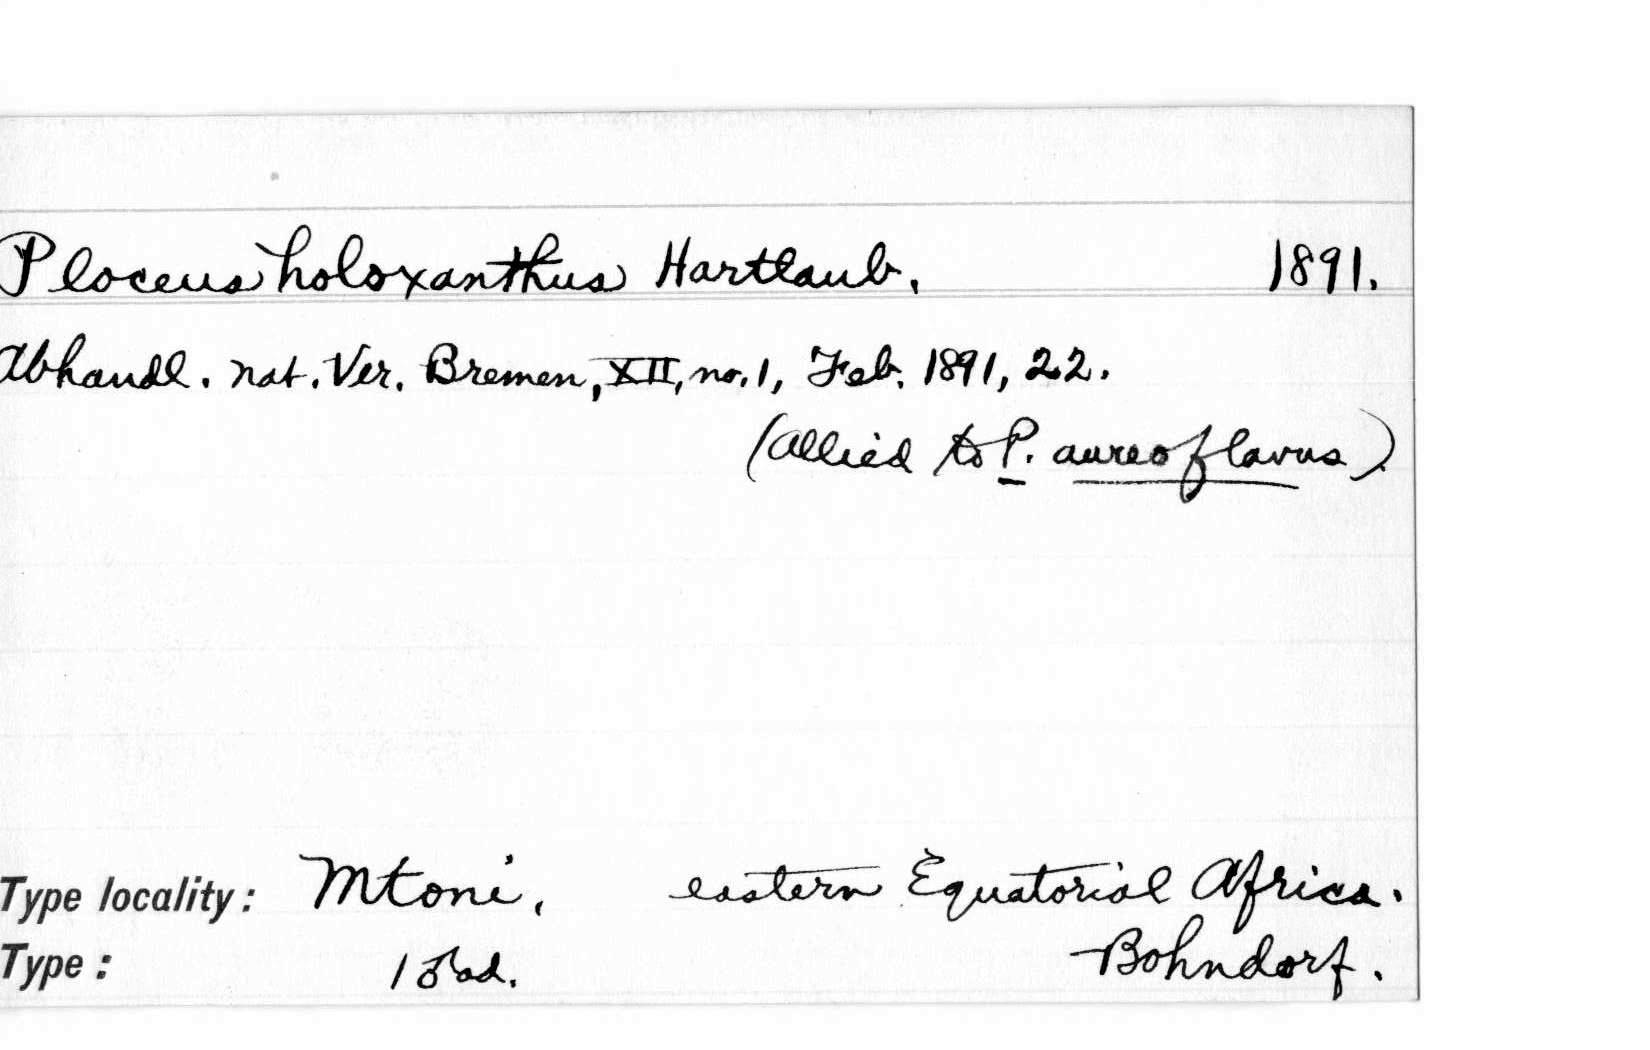 Ploceus holoxanthus Hartlaub. 1891.
Abhandl. nat. Ver. Bremen, XII, no. 1, Feb. 1891, 22.
(Allied to P. aureoflavus)
Type locality: Mtoni, eastern Equatorial Africa.
Type: 1 ♂ ad. Bohndorf.